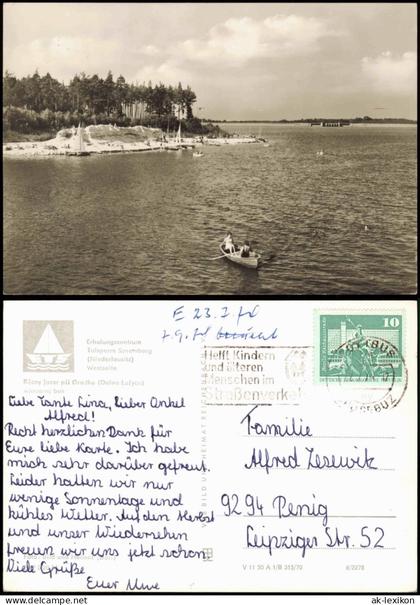 E 23.7.
7.9.
Erholungszentrum
Talsperre Spremberg
(Niederlausitz)
Westseite
Rěčny jazor pśi Grodku (Dolna Łužyca)
Helft Kindern
und älteren
Menschen im
Straßenverkehr
COTTBUS
CHOŚEBUZ
10
Liebe Tante Lina, lieber Onkel
Alfred!
Recht herzlichen Dank für
Eure liebe Karte. Ich habe
mich sehr darüber gefreut.
Leider hatten wir nur
wenige Sonnentage und
kühles Wetter. Auf den Herbst
und unser Wiedersehen
freuen wir uns jetzt schon.
Viele Grüße
Euer Uwe
Familie
Alfred Zesewik
9294 Penig
Leipziger Str. 52
V 11 50 A 1/B 313/70
6/2278
www.ak-lexikon.de
ak-lexikon.com